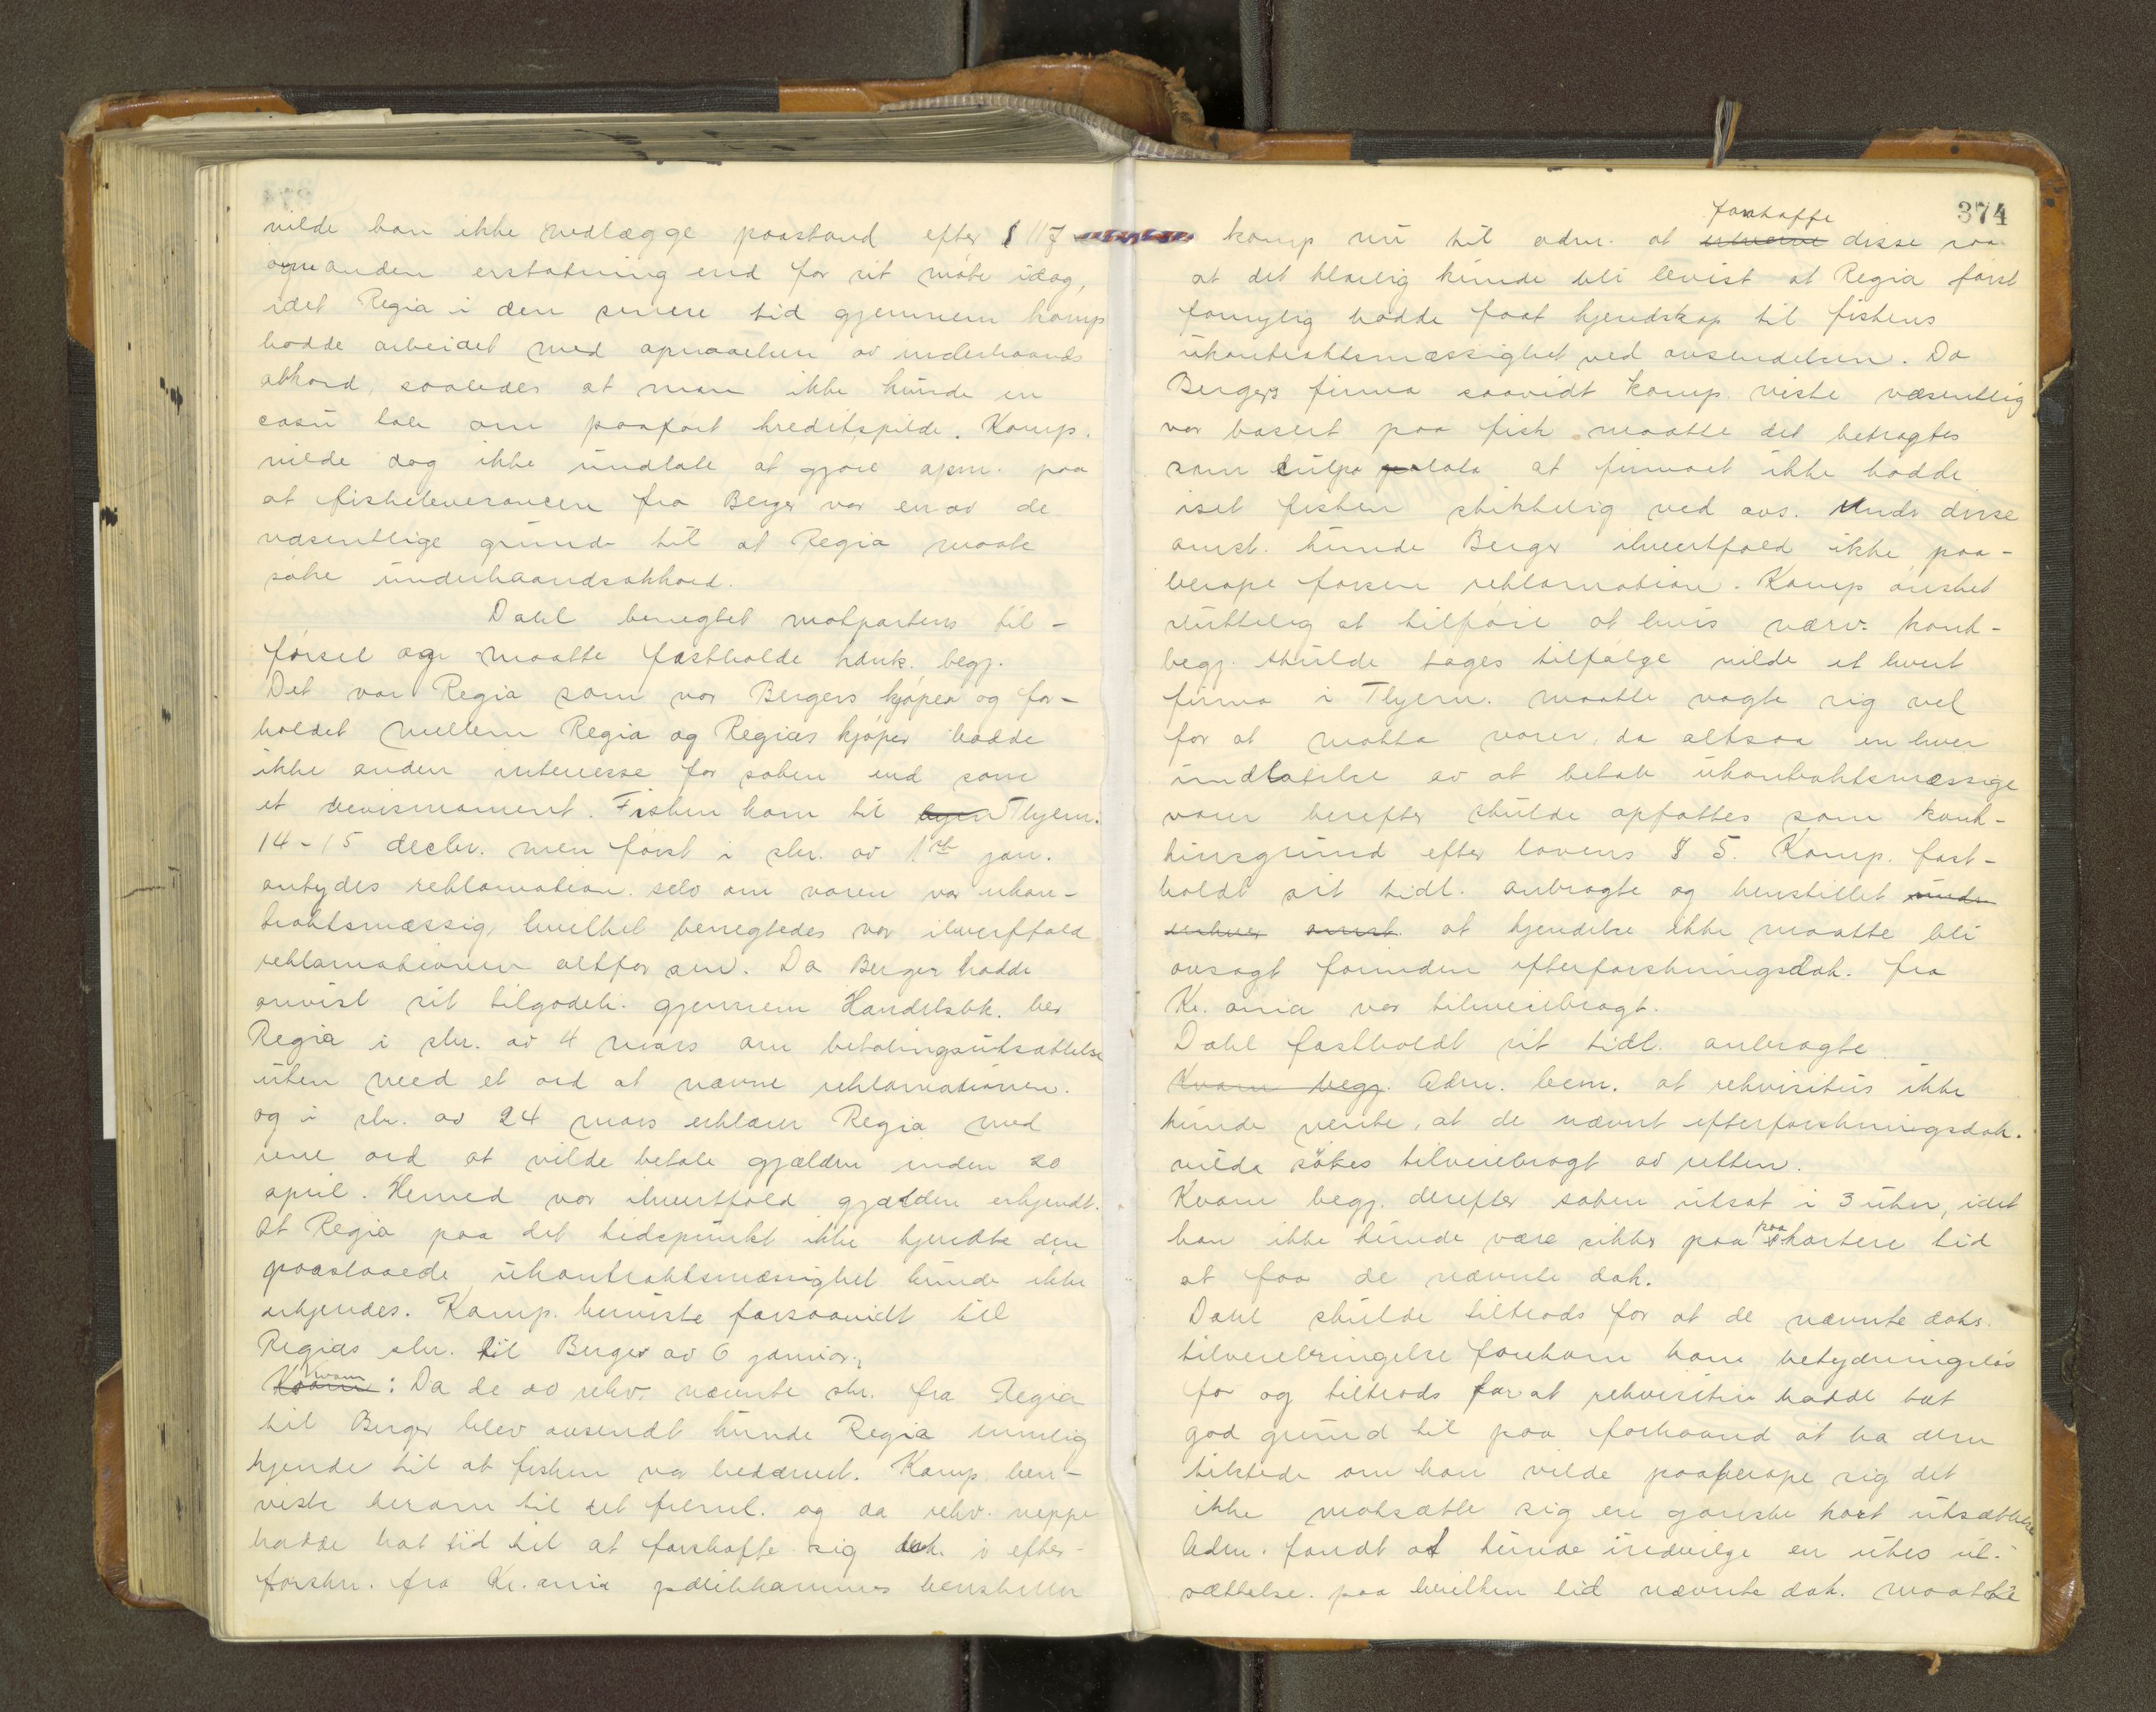 vilde han ikke nedlægge paastand efter § 117
ogsaa anden erstatning end for sit møte idag,
idet Regia i den senere tid gjennem komp
hadde arbeidet med opnaaelsen av underhaands
akkord, saaledes at man ikke kunde in
casu tale om paaført kreditspilde. Komp.
vilde dog ikke undlate at gjøre opm. paa
at fiskeleverancen fra Berger var en av de
væsentlige grunde til at Regia maate
søke underhaandsakkord.
Dahl benegtet motpartens til-
førsel og maatte fastholde hans k. begj.
Det var Regia som var Bergers kjøper og for-
holdet mellem Regia og Regias kjøper hadde
ikke anden interesse for saken end som
et bevismoment. Fisken kom til byen Thjem.
14-15 decbr. men først i skr. av 1ste jan.
antydes reklamation. selv om varen var ukon-
traktsmæssig, hvilket benegtedes var ihvertfald
reklamationen altfor sen. Da Berger hadde
anvist sit tilgodeh. gjennem Handelsbk. ber
Regia i skr. av 4 mars om betalingsutsættelse
uten med et ord at nævne reklamationen.
og i skr. av 24 mars erklærer Regia med
rene ord at vilde betale gjælden inden 20
april. Herved var ihvertfald gjælden erkjendt.
At Regia paa det tidspunkt ikke kjendte den
paastaaede ukontraktsmæssighet kunde ikke
erkjendes. Komp. henviste forsaavidt til
Regias skr. til Berger av 6 januar.
Kvam: Da de av rekv. nævnte skr. fra Regia
til Berger blev avsendt kunde Regia umulig
kjende til at fisken var bedærvet. Komp. hen-
viste herom til det freml. og da rekv. neppe
hadde hat tid til at forskaffe sig dok. i efter-
forskn. fra Kr.ania politikammer henstiller
374
komp nu til adm. at forskaffe disse saa
at det klarlig kunde bli bevist at Regia først
fornylig hadde faat kjendskap til fiskens
ukontraktsmæssighet ved avsendelsen. Da
Bergers firma saavidt komp. viste væsentlig
var basert paa fisk maatte det betragtes
som culpa lata at firmaet ikke hadde
iset fisken skikkelig ved avs. Under disse
omst. kunde Berger ihvertfald ikke paa-
berope forsen reklamation. Komp ønsket
sluttelig at tilføie at hvis nærv. konk-
begj. skulde tages tilfølge vilde et hvert
firma i Thjem. maatte vogte sig vel
for at motta varer, da altsaa en hver
undlatelse av at betale ukontraktsmæssige
varer herefter skulde opfattes som konk-
hinsgrund efter lovens § 5. Komp. fast-
holdt sit tidl. anbragte og henstillet under
enhver omst. at kjendelse ikke maatte bli
avsagt forinden efterforskningsdok. fra
Kr.ania var tilveiebragt.
Dahl fastholdt sit tidl. anbragte.
Kvam begj. Adm. bem. at rekvisitus ikke
kunde vente, at de nævnt efterforskningsdok.
vilde søkes tilveiebragt av retten.
Kvam begj. derefter saken utsat i 3 uker, idet
han ikke kunde være sikker paa paa kortere tid
at faa de nævnte dok.
Dahl skulde tiltrods for at de nævnte doks.
tilveiebringelse forekom ham betydningsløs
for og tiltrods for at rekvisitus hadde hat
god grund til paa forhaand at ha dem
tilstede om han vilde paaberope sig det
ikke motsætte sig en ganske kort utsættelse
Adm. fandt at kunde indvilge en ukes ut-
sættelse. paa hvilken tid nævnte dok. maatte